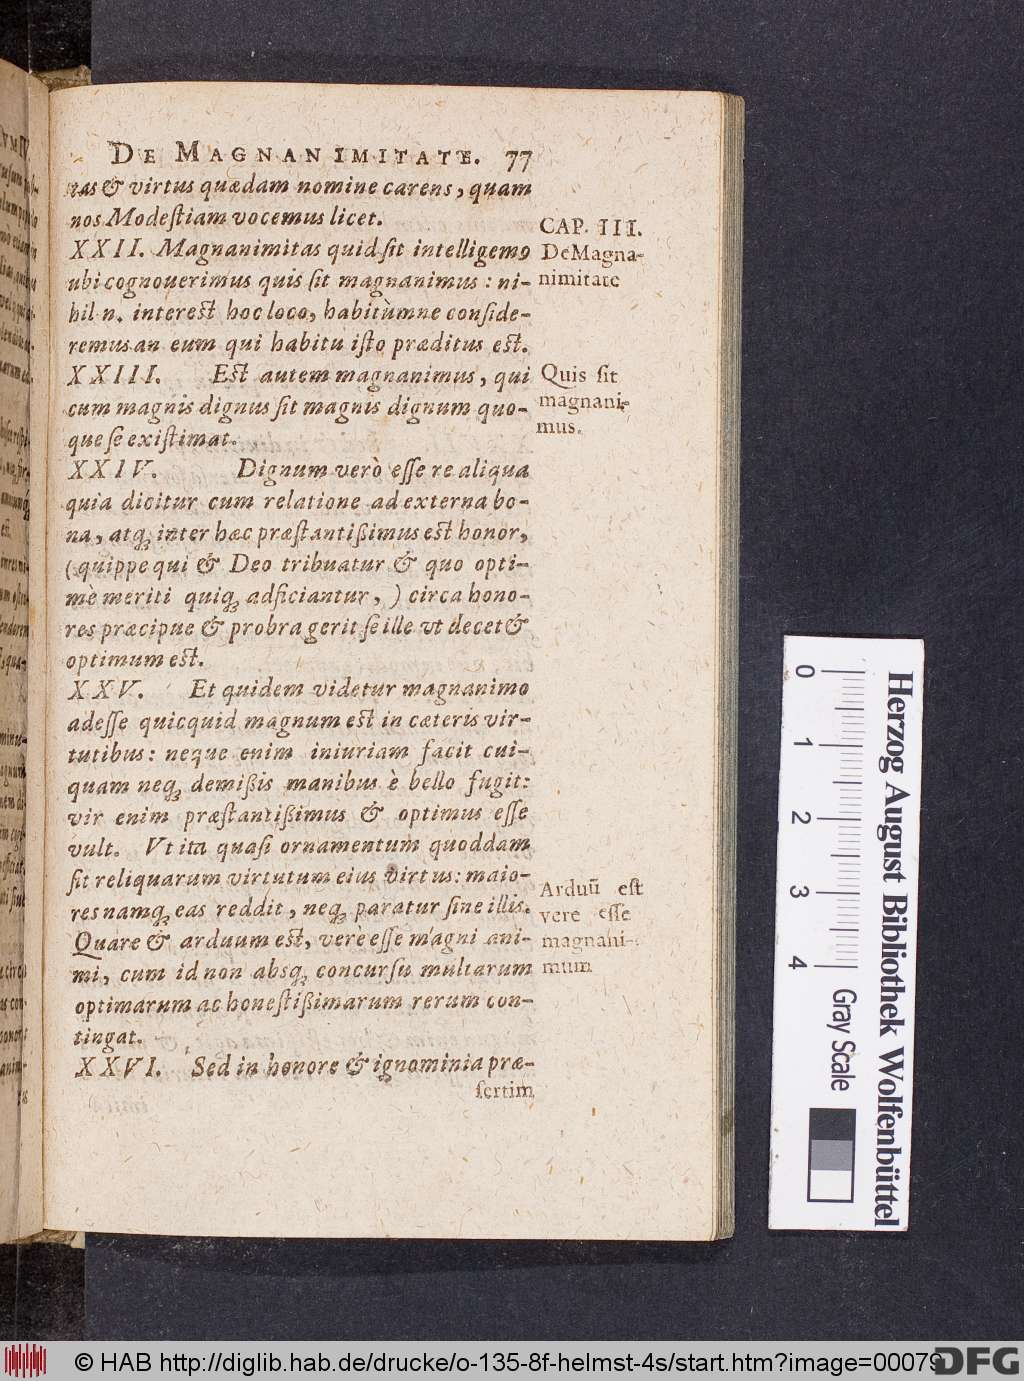 DE MAGNANIMITATE. 77
tas & virtus quædam nomine carens, quam
nos Modeſtiam vocemus licet.
CAP. III.
De Magna-
nimitate
XXII. Magnanimitas quid ſit intelligemꝰ
ubi cognouerimus quis ſit magnanimus: ni-
hil n. intereſt hoc loco, habitùmne conſide-
remus an eum qui habitu iſto præditus eſt.
XXIII. Eſt autem magnanimus, qui
cum magnis dignus ſit magnis dignum quo-
que ſe exiſtimat.
Quis ſit
magnani-
mus.
XXIV. Dignum verò eſſe re aliqua
quia dicitur cum relatione ad externa bo-
na, atq; inter hæc præſtantißimus eſt honor,
(quippe qui & Deo tribuatur & quo opti-
mè meriti quiq; adficiantur,) circa hono-
res præcipue & probra gerit ſe ille vt decet &
optimum eſt.
XXV. Et quidem videtur magnanimo
adeſſe quicquid magnum eſt in cæteris vir-
tutibus: neque enim iniuriam facit cui-
quam neq; demißis manibus è bello fugit:
vir enim præſtantißimus & optimus eſſe
vult. Vt ita quaſi ornamentum quoddam
ſit reliquarum virtutum eius virtus: maio-
res namq; eas reddit, neq; paratur ſine illis.
Quare & arduum eſt, verè eſſe magni ani-
mi, cum id non absq; concurſu multarum
optimarum ac honeſtißimarum rerum con-
tingat.
Arduū eſt
vere eſſe
magnani-
mum
XXVI. Sed in honore & ignominia præ-
ſertim
Herzog August Bibliothek Wolfenbüttel
0 1 2 3 4
Gray Scale
© HAB http://diglib.hab.de/drucke/o-135-8f-helmst-4s/start.htm?image=00079
DFG